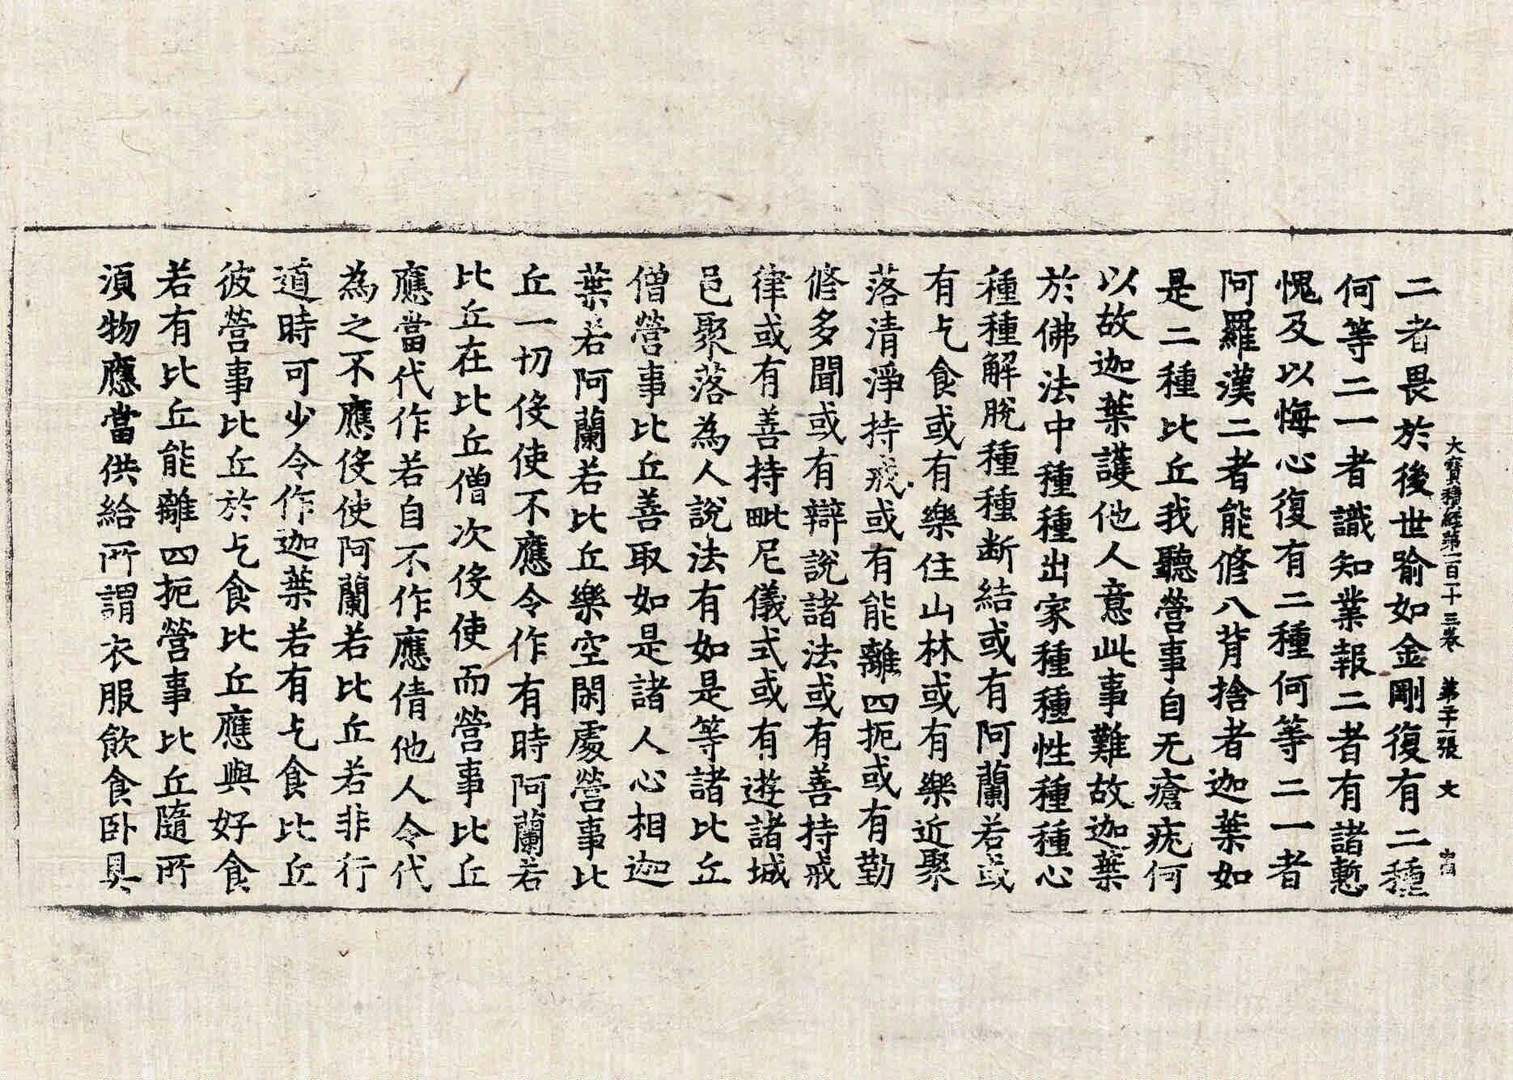 大寶積經第一百一十三卷 第二十二張 文
二者畏於後世喻如金剛復有二種
何等二一者識知業報二者有諸慙
愧及以悔心復有二種何等二一者
阿羅漢二者能修八背捨者迦葉如
是二種比丘我聽營事自无瘡疣何
以故迦葉護他人意此事難故迦葉
於佛法中種種出家種種性種種心
種種解脫種種断結或有阿蘭若或
有乞食或有樂住山林或有樂近聚
落清淨持戒或有能離四扼或有勤
修多聞或有辯說諸法或有善持戒
律或有善持毗尼儀式或有遊諸城
邑聚落為人說法有如是等諸比丘
僧營事比丘善取如是諸人心相迦
葉若阿蘭若比丘樂空閑處營事比
丘一切伇使不應令作有時阿蘭若
比丘在比丘僧次伇使而營事比丘
應當代作若自不作應倩他人令代
為之不應伇使阿蘭若比丘若非行
道時可少令作迦葉若有乞食比丘
彼營事比丘於乞食比丘應與好食
若有比丘能離四扼營事比丘隨所
湏物應當供給所謂衣服飲食卧具